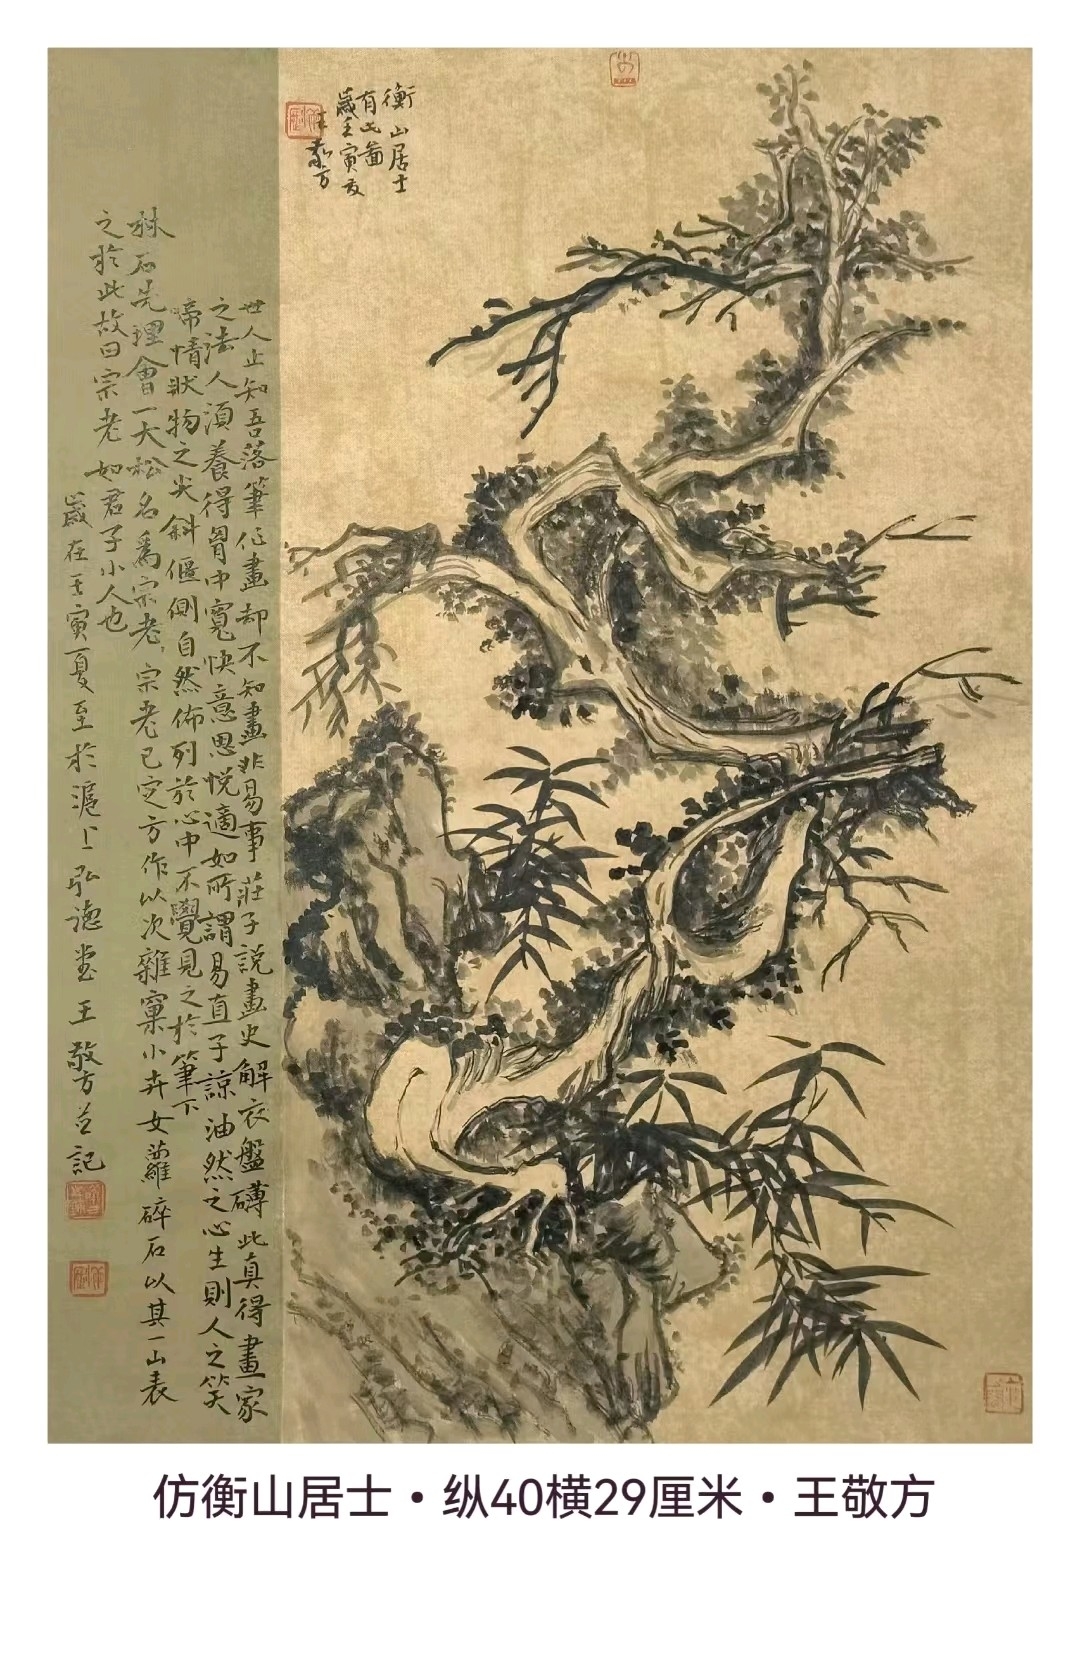 衡山居士
有此圖
歲壬寅夏
王敬方
世人止知吾落筆作畫却不知畫非易事莊子說畫史解衣盤礴此真得畫家
之法人須養得胷中寬快意思悦適如所謂易直子諒油然之心生則人之笑
啼情狀物之尖斜偃側自然佈列於心中不覺見之於筆下
林石先理會一大松名爲宗老宗老已定方作以次雜窠小卉女蘿碎石以其一山表
之於此故曰宗老如君子小人也
歲在壬寅夏至於滬上弘德堂王敬方并記
仿衡山居士·纵40横29厘米·王敬方